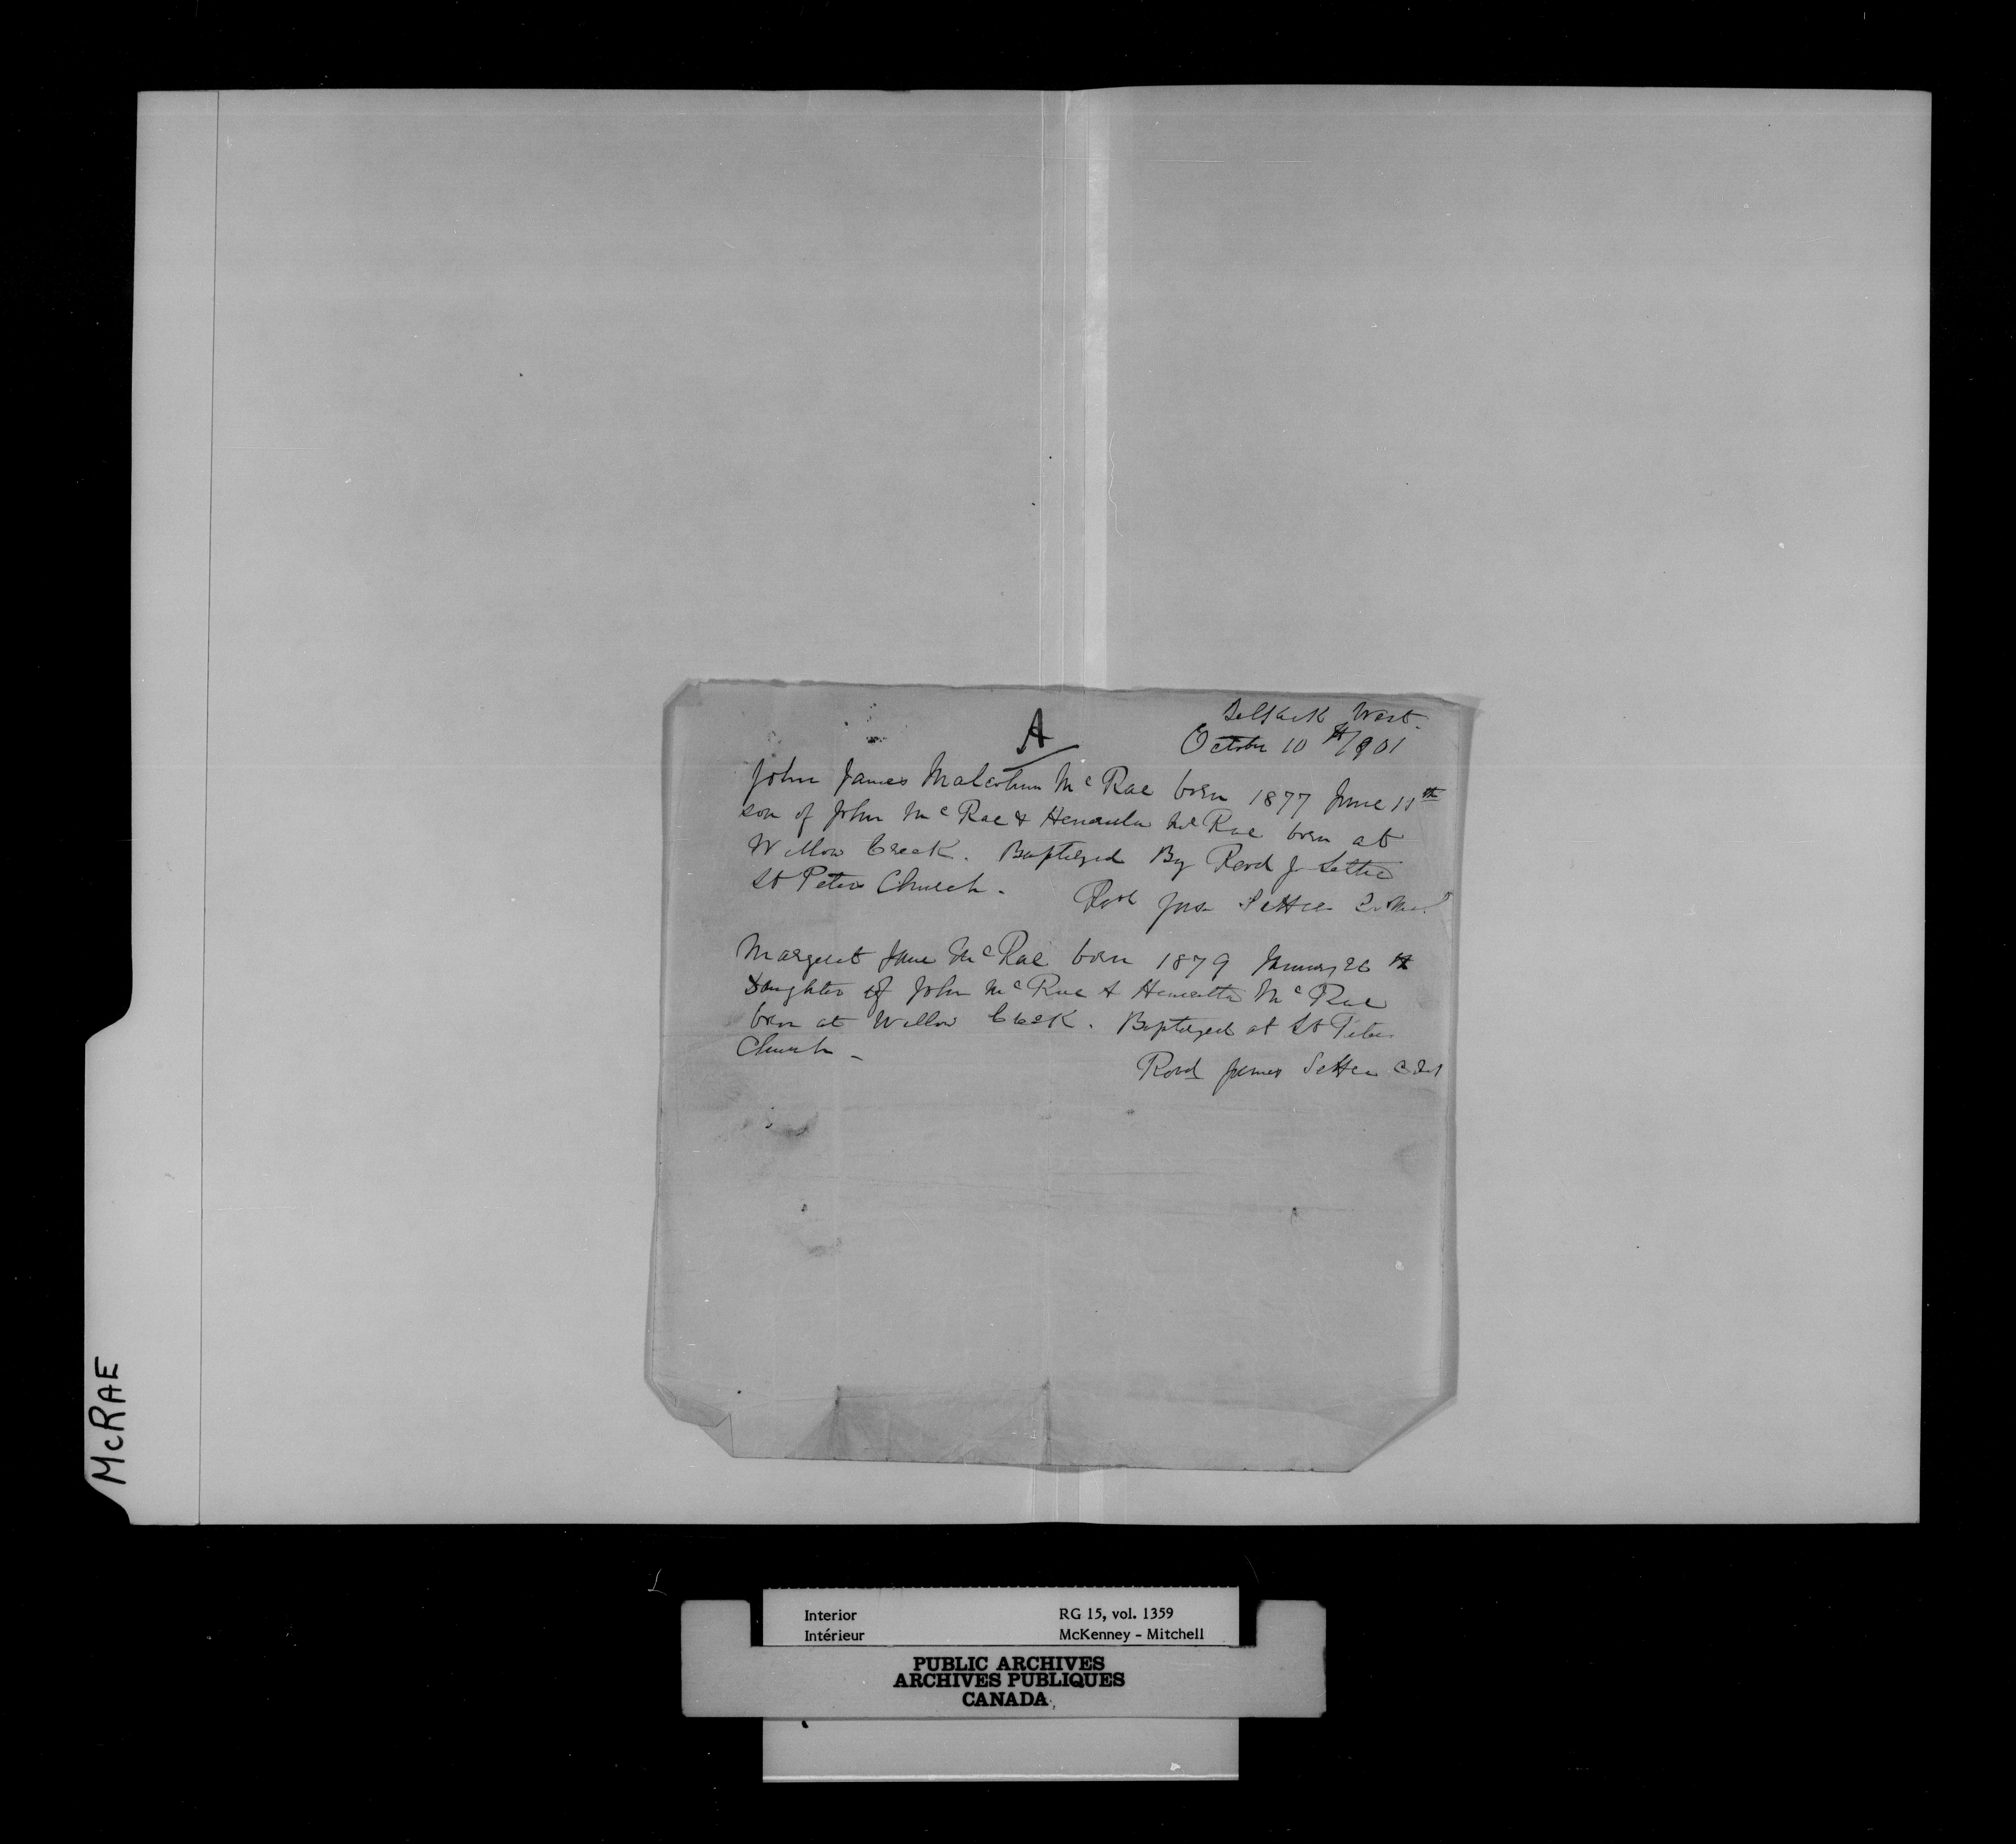 A
Selkirk West.
October 10th/1901
John James Malcolm McRae born 1877 June 11th
son of John McRae & Henrietta McRae born at
Willow Creek. Baptized By Revd J Settee
St Peters Church.
Revd Jas Settee
Margeret Jane McRae born 1879 January 26th
Daughter of John McRae & Henrietta McRae
born at Willow Creek. Baptized at St Peters
Church -
Revd James Settee
McRAE
Interior RG 15, vol. 1359
Intérieur McKenney - Mitchell
PUBLIC ARCHIVES
ARCHIVES PUBLIQUES
CANADA